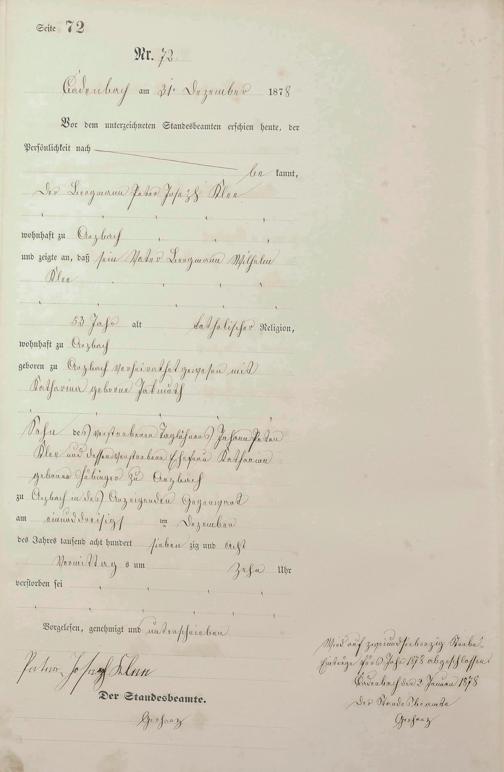 Seite 72
Nr. 72
Cadenbach am 31ten Dezember 1878
Vor dem unterzeichneten Standesbeamten erschien heute, der
Persönlichkeit nach
be kannt,
der Bergmann Peter Joseph Klee
wohnhaft zu Arzbach
und zeigte an, daß sein Vater Bergmann Wilhelm
Klee
53 Jahr alt katholischer Religion,
wohnhaft zu Arzbach
geboren zu Arzbach verheirathet gewesen mit
Katharina geborne
Sohn des verstorbenen Taglöhners Johann Peter
Klee und dessen verstorbene Ehefrau Katharina
geborner Hübinger zu Arzbach
zu Arzbach in des Anzeigenden Gegenwart
am einunddreisigs ten Dezember
des Jahres tausend acht hundert sieben zig und acht
Vormittag s um zehn Uhr
verstorben sei
Vorgelesen, genehmigt und unterschrieben
Peter Joseph Klee
Der Standesbeamte.
Wird auf zweiundsiebenzig Sterbe-
Einträge fürs Jahr 1878 abgeschlossen
Cadenbach den 2 Januar 1878
Der Standesbeamte